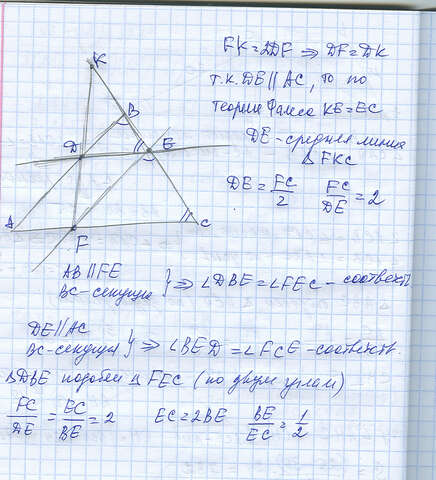 K
B
D
E
A
F
C
FK = 2DF ⇒ DF = DK
т.к. DE ∥ AC, то по
теореме Фалеса KE = EC
DE - средняя линия
△ FKC
DE = FC/2 FC/DE = 2
AB ∥ FE
BC - секущая } ⇒ ∠DBE = ∠FEC - соответств
DE ∥ AC
BC - секущая } ⇒ ∠BED = ∠FCE - соответств.
△DBE подобен △ FEC (по двум углам)
FC/DE = EC/BE = 2 EC = 2BE BE/EC = 1/2